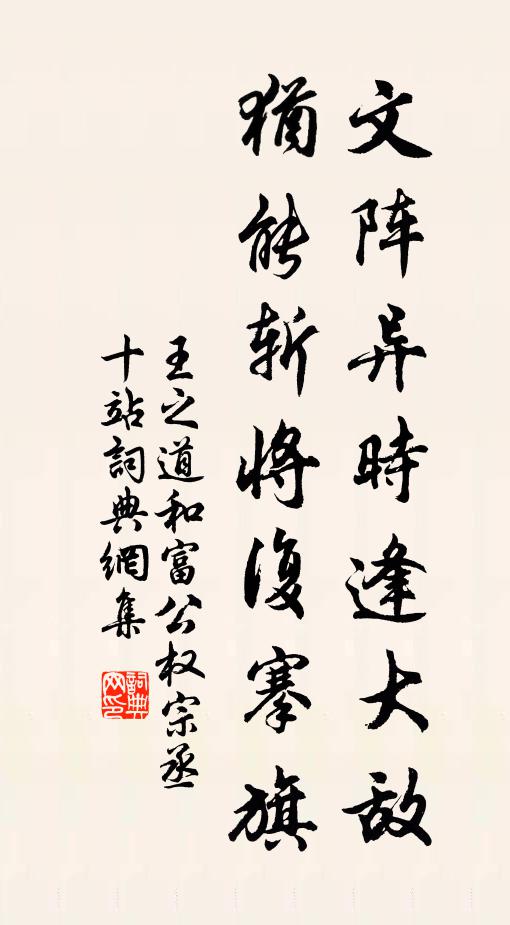 文阵异時逢大敌
猶能斩將復搴旗
王之道和富公权宗丞
十站詞典網集
詞典网印